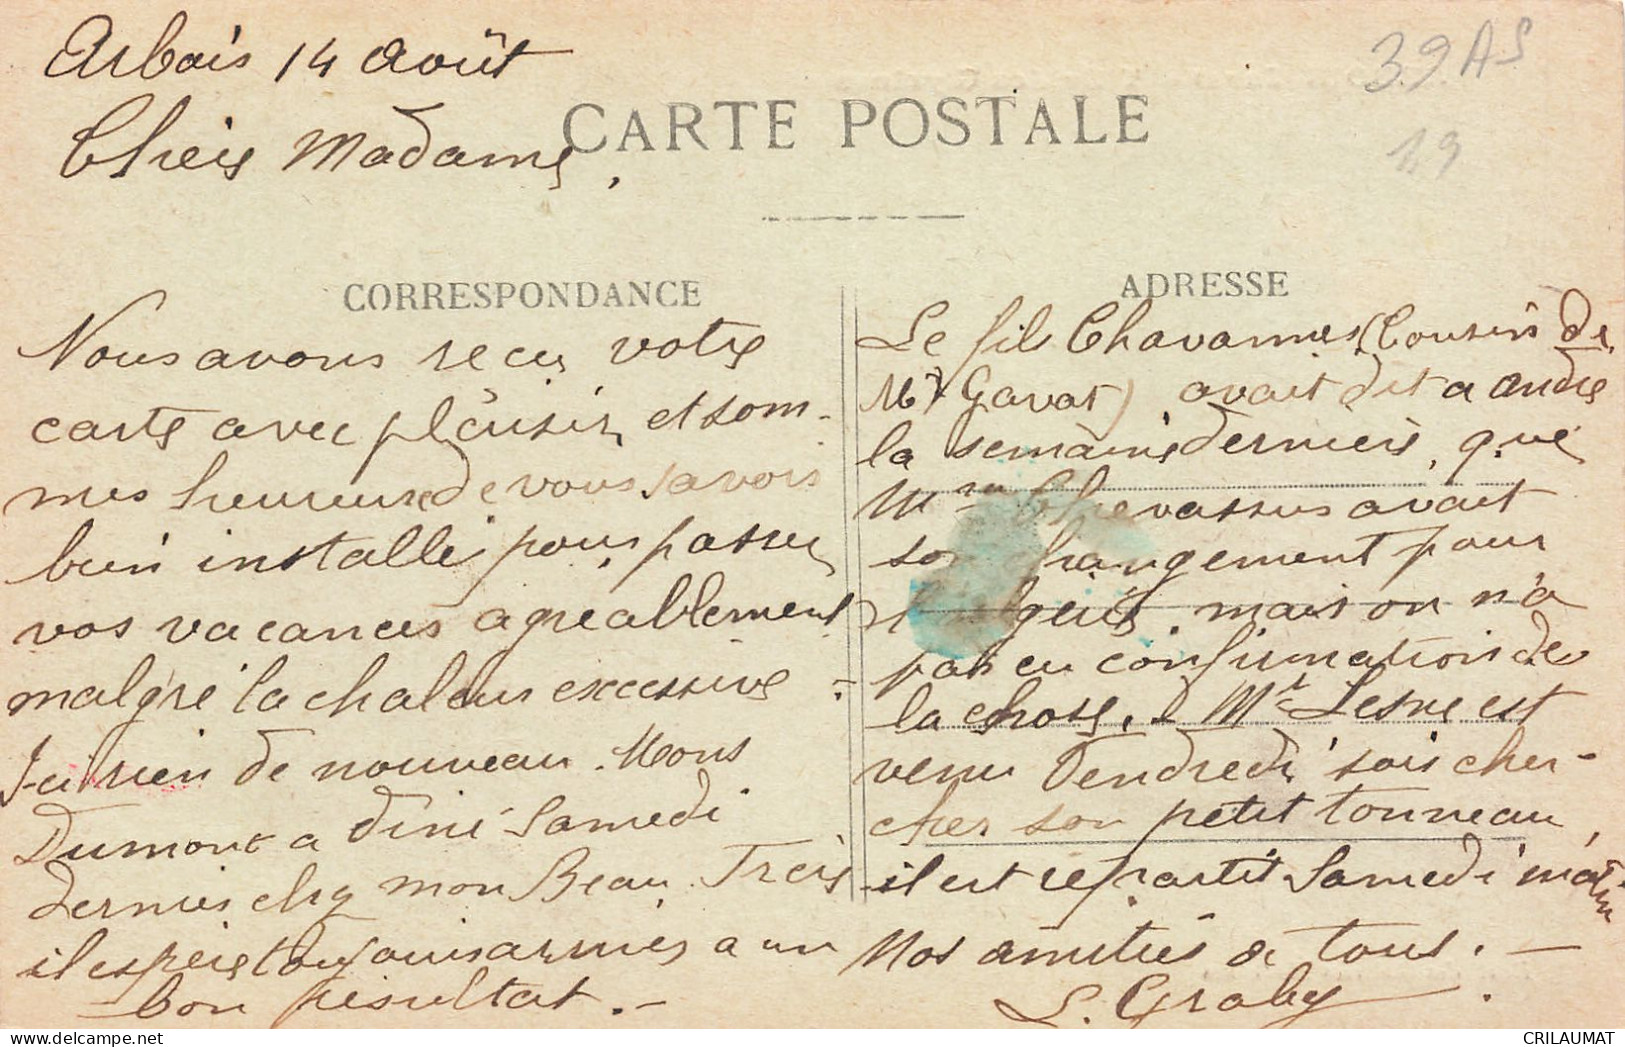 Arbois 14 Août
Chère Madame,
CARTE POSTALE
39 AS
19
CORRESPONDANCE
Nous avons reçu votre
carte avec plaisir, et som-
mes heureuse de vous savoir
bien installé pour passer
vos vacances agreablement
malgré la chaleur excessive -
Ici rien de nouveau. Mons
Dumont a diné Samedi
dernier chez mon Beau. Frère
il espère toujours arriver a un
bon résultat. -
ADRESSE
Le fils Chavannes (Cousin de
Mr Gavat) avait dit a André
la semaine dernière, que
Mme Chevassus avait
son changement pour
l'Algérie, mais on n'a
pas eu confirmation de
la chose. Mr Lesne est
venu Vendredi soir cher-
cher son petit tonneau,
il est repartit Samedi matin
Nos amitiés a tous. -
L. Graby
CRILAUMAT